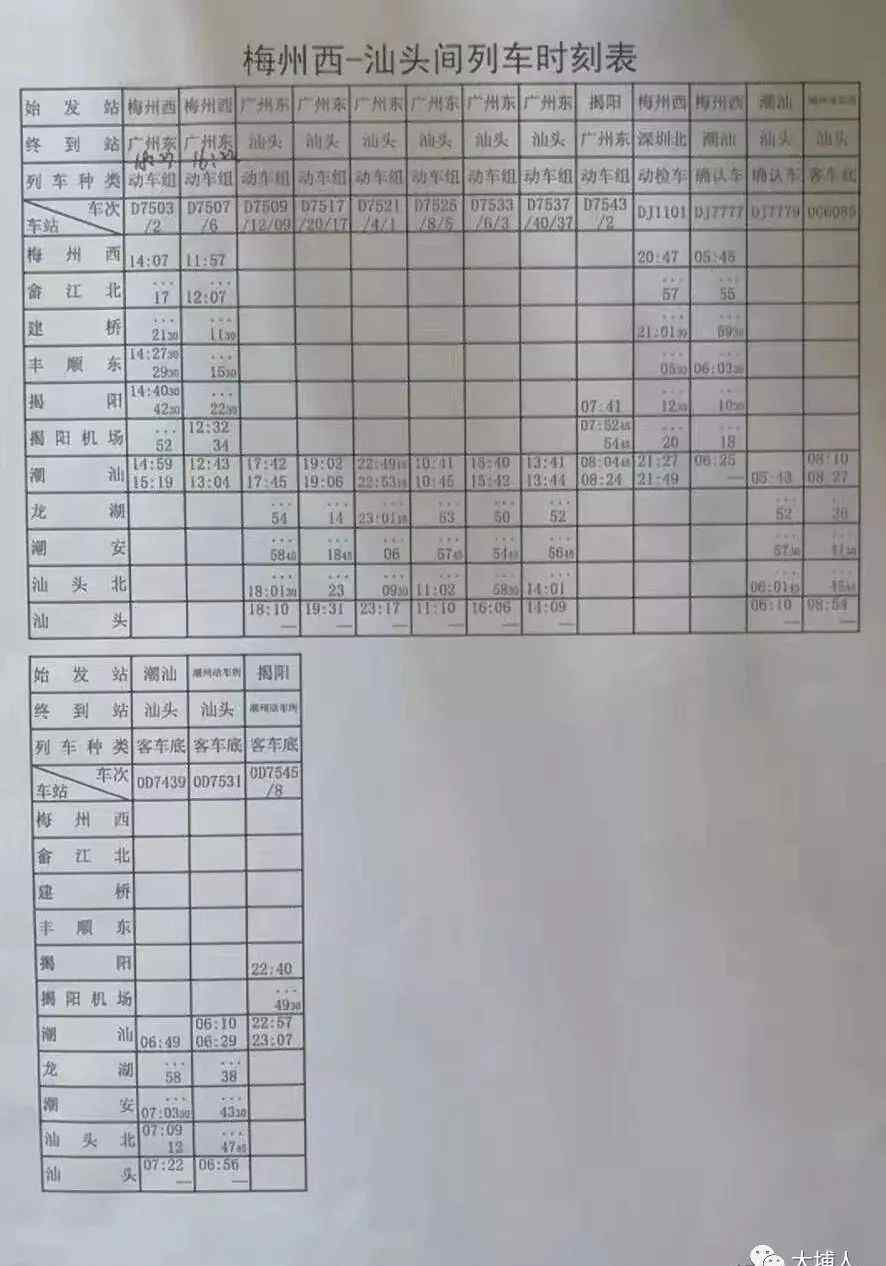 梅州西-汕头间列车时刻表
始发站 梅州西 梅州西 广州东 广州东 广州东 广州东 广州东 广州东 揭阳 梅州西 梅州西 潮汕 潮州动车所
终到站 广州东 广州东 汕头 汕头 汕头 汕头 汕头 汕头 广州东 深圳北 潮汕 汕头 汕头
列车种类 动车组 动车组 动车组 动车组 动车组 动车组 动车组 动车组 动车组 动检车 确认车 确认车 客车底
车次 D7503 D7507 D7509 D7517 D7521 D7525 D7533 D7537 D7543 DJ1101 DJ7777 DJ7779 0G6085
车站 /2 /6 /12/09 /20/17 /4/1 /8/5 /6/3 /40/37 /2
梅州西 14:07 11:57 20:47 05:45
... ... ... ...
畲江北 17 12:07 57 55
... ... ... ...
建桥 2130 1130 21:0130 5930
14:2730 ... ... 
丰顺东 2930 1530 0530 06:0330
14:4030 ... ... ...
揭阳 4230 2230 07:41 1230 1030
... 12:32 07:5245 ... ...
揭阳机场 52 34 5445 20 18
潮汕 14:59 12:43 17:42 19:02 22:4915 10:41 15:40 13:41 08:0445 21:27 06:25 08:10
15:19 13:04 17:45 19:06 22:5315 10:45 15:42 13:44 08:24 21:49 — 05:43 08:27
... ... ... ... ... ... ... ...
龙湖 54 14 23:0115 53 50 52 52 36
... ... ... ... ... ... ... ...
潮安 5845 1845 06 5745 5445 5645 5730 4130
... ... ... ... ... ... ... ...
汕头北 18:0130 23 0930 11:02 5830 14:01 06:0145 4545
汕头 18:10 19:31 23:17 11:10 16:06 14:09 06:10 08:54
— — — — — — — —
始发站 潮汕 潮州动车所 揭阳
终到站 汕头 汕头 潮州动车所
列车种类 客车底 客车底 客车底
车次 0D7439 0D7531 0D7545
车站 /8
梅州西
畲江北
建桥
丰顺东
揭阳 22:40
...
揭阳机场 4930
06:10 22:57
潮汕 06:49 06:29 23:07
... ...
龙湖 58 38
... ...
潮安 07:0330 4330
07:09 ...
汕头北 12 4745
汕头 07:22 06:56
— —
大埔人